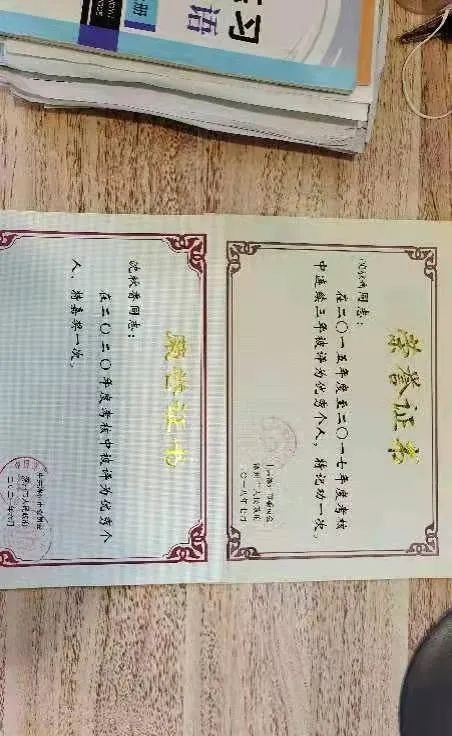 练习
语
册
荣誉证书
同志：
在二〇一五年度至二〇一七年度考核
中连续三年被评为优秀个人，特记功一次。
二〇一八年七月
荣誉证书
沈秋香同志：
在二〇二〇年度考核中被评为优秀个
人，特嘉奖一次。